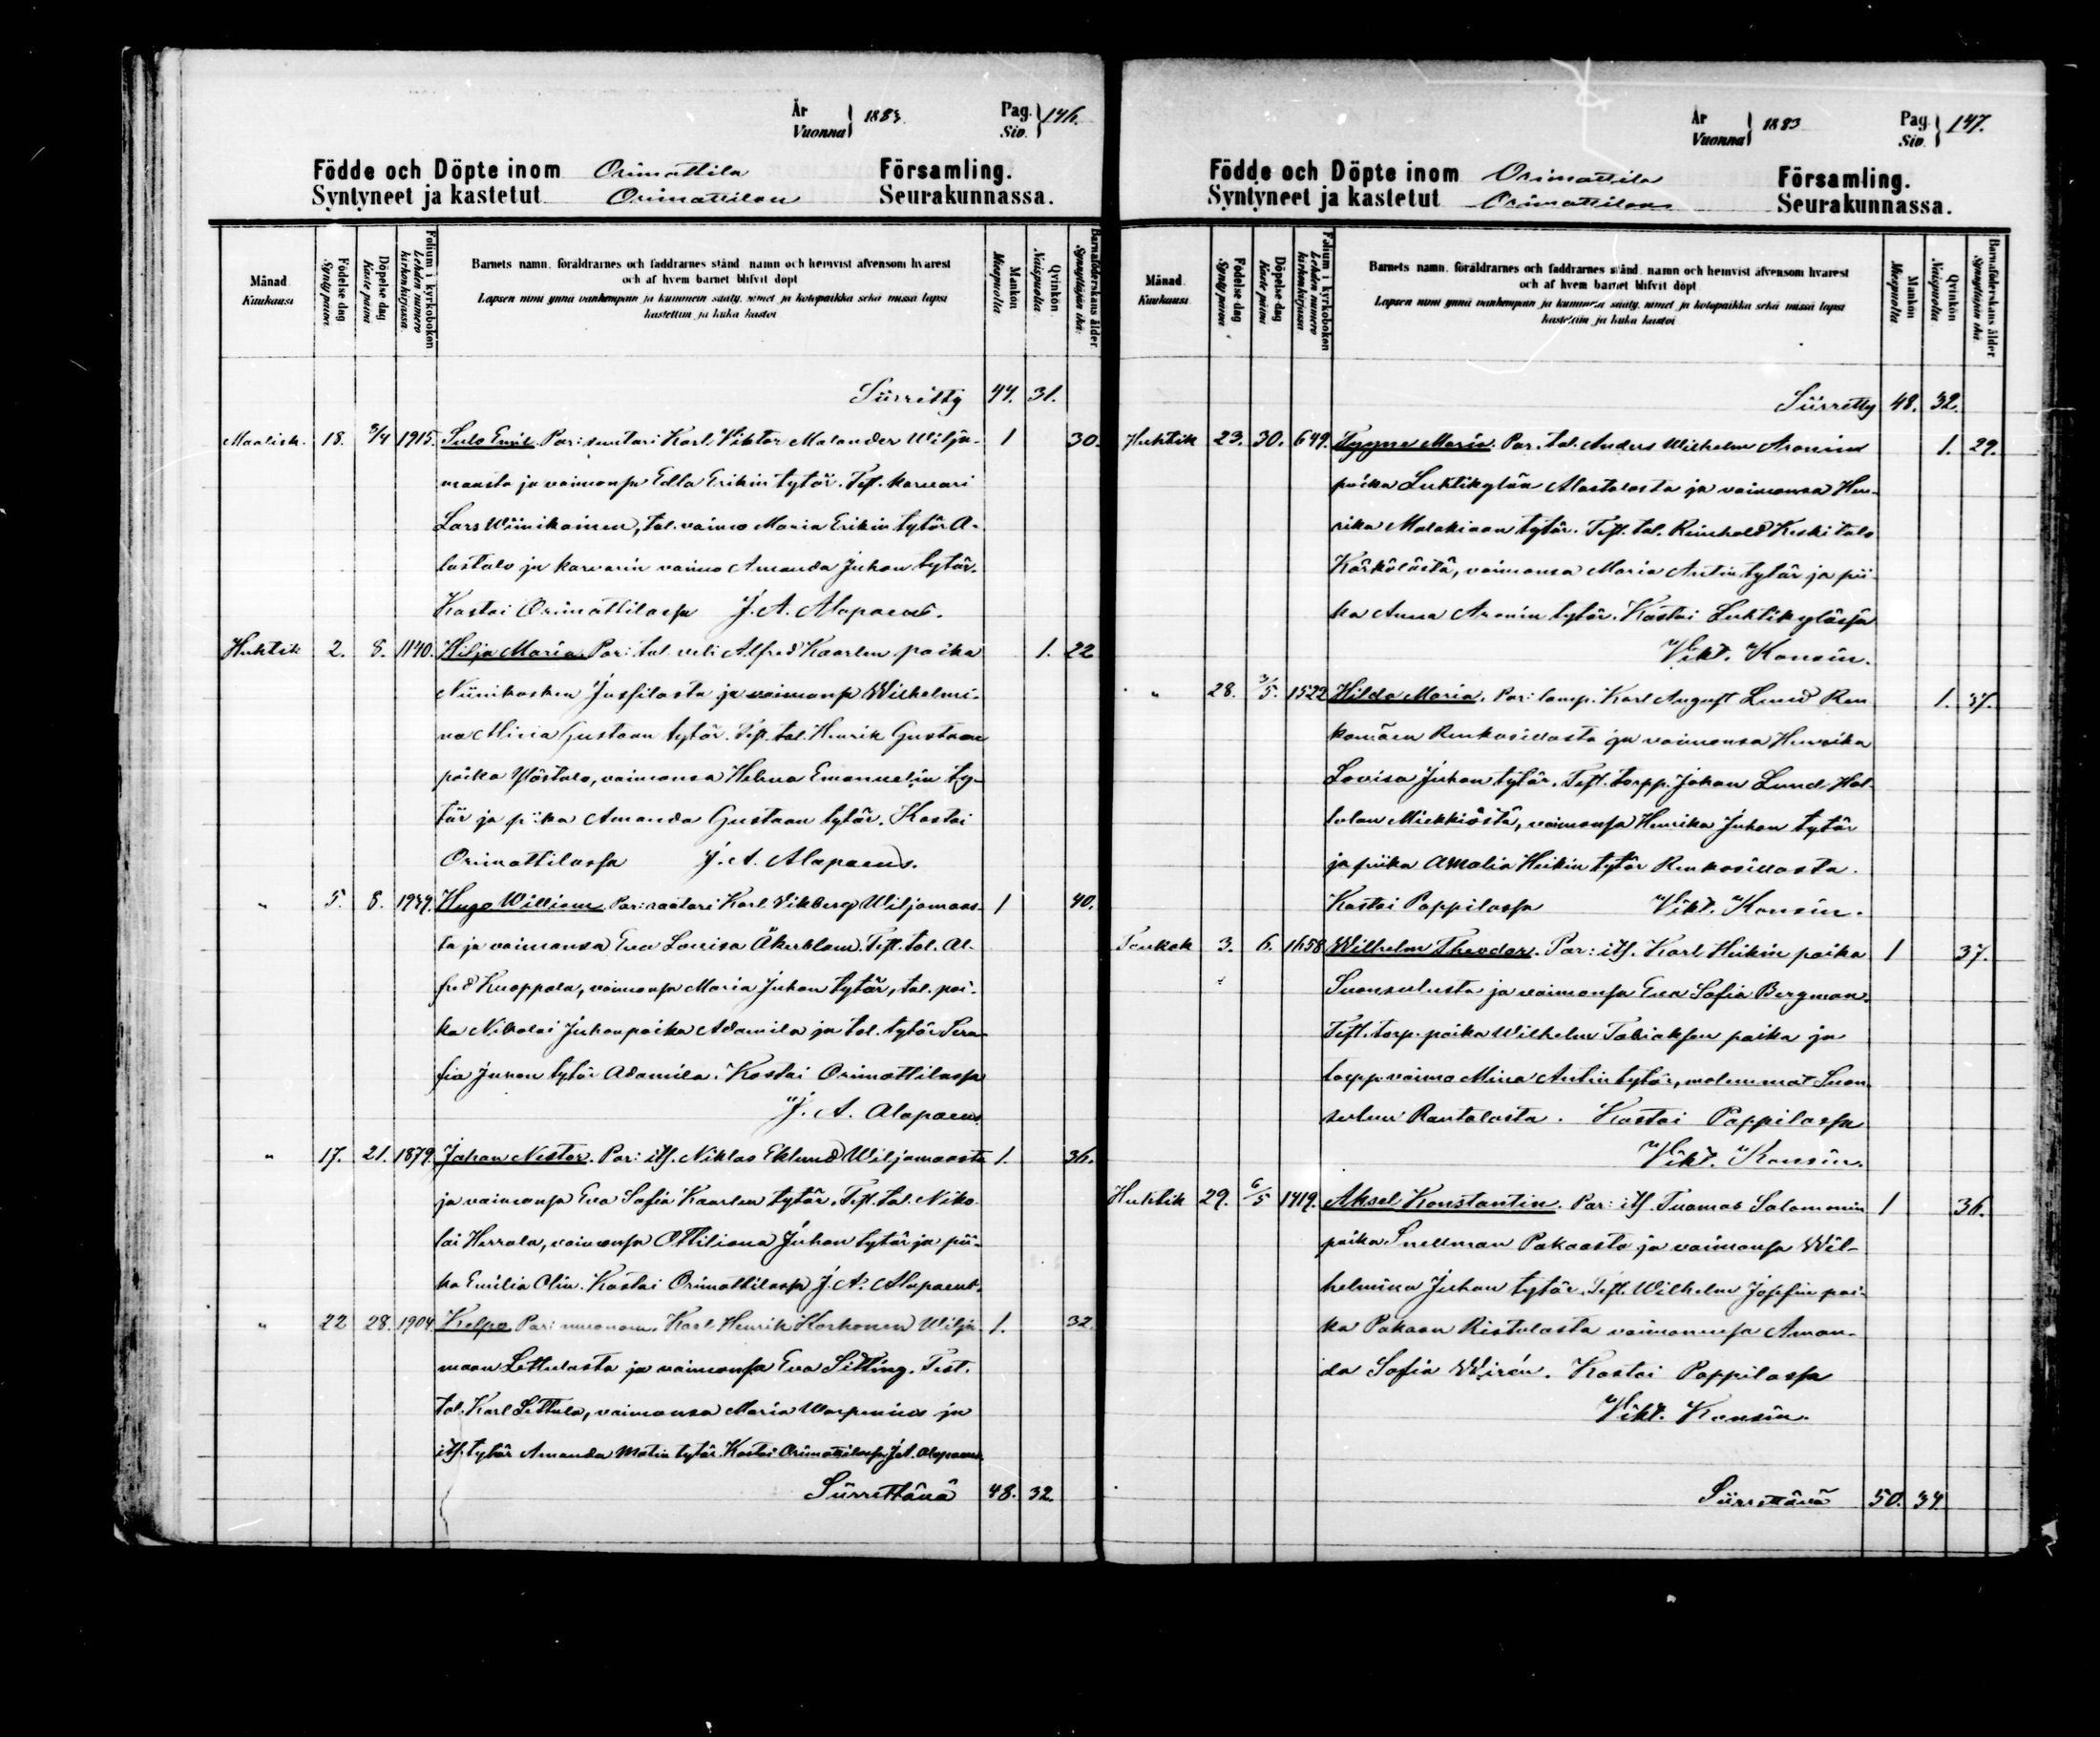 År
Vuonna } 1883.
Pag.
Siv. } 146.
Födde och Döpte inom Orimattila Församling.
Syntyneet ja kastetut Orimattilan Seurakunnassa.
Månad
Kuukausi
Födelse dag
Synty päivä
Döpelse dag
Kaste päivä
Folium i kyrkoboken
Lehden numero kirkonkirjassa
Barnets namn, föräldrarnes och faddrarnes stånd, namn och hemvist äfvensom hvarest
och af hvem barnet blifvit döpt
Lapsen nimi ynnä vanhempain ja kummein sääty, nimet ja kotopaikka sekä missä lapsi
kastettiin ja kuka kastoi
Mankön
Miespuolta
Qvinkön
Naispuolta
Barnaföderskans ålder
Synnyttäjän ikä
Siirretty 44. 31.
Maalisk. 18. 3/4 1915. Sulo Emil Par: suutari Karl Viktor Malander Wilja- 1 30.
maasta ja vaimonsa Edla Erikin tytär. Test. karvari
Lars Wiinikainen, tal. vaimo Maria Erikin tytär A-
lastalo ja karvarin vaimo Amanda Juhan tytär.
Kastoi Orimattilassa J. A. Alopaeus.
Huhtik 2. 8. 1140. Hilja Maria Par: tal. veli Alfred Kaarlen poika 1. 22
Niinikosken Jussilasta ja vaimonsa Wilhelmi-
na Miria Gustaan tytär. Test. tal. Henrik Gustaan
poika Ylöstalo, vaimonsa Helena Emanuelin ty-
tär ja piika Amanda Gustaan tytär. Kastoi
Orimattilassa J. A. Alopaeus.
" 5. 8. 1939. Hugo William Par: räätäri Karl Vikberg Wiljamaas- 1 40.
ta ja vaimonsa Eva Lovisa Åkerblom. Test. tal. Al-
fred Knoppala, vaimonsa Maria Juhan tytär, tal. poi-
ka Nikolai Juhanpoika Adamila ja tal. tytär Sera-
fia Juhan tytär Adamila. Kastoi Orimattilassa
J. A. Alopaeus.
" 17. 21. 1879. Johan Nestor. Par: its. Niklas Eklund Wiljamaasta 1. 36.
ja vaimonsa Eva Sofia Kaarlen tytär. Test. tal. Niko-
lai Herrala, vaimonsa Ottiliana Juhan tytär ja pii-
ka Emilia Olin. Kastoi Orimattilassa J. A. Alopaeus.
" 22 28. 1904. Kelpo Par: muonam. Karl Henrik Korhonen Wilja- 1. 32.
maan Lettulasta ja vaimonsa Eva Sitting. Test.
tal. Karl Lettula, vaimonsa Maria Warpenius ja
its. tytär Amanda Matin tytär. Kastoi Orimattilassa J.A. Alopaeus.
Siirrettävä 48. 32.
År
Vuonna } 1883
Pag
Siv. } 147.
Födde och Döpte inom Orimattila Församling.
Syntyneet ja kastetut Orimattilan Seurakunnassa.
Månad
Kuukausi
Födelse dag
Synty päivä
Döpelse dag
Kaste päivä
Folium i kyrkoboken
Lehden numero kirkonkirjassa
Barnets namn, föräldrarnes och faddrarnes stånd, namn och hemvist äfvensom hvarest
och af hvem barnet blifvit döpt
Lapsen nimi ynnä vanhempain ja kummein sääty, nimet ja kotopaikka sekä missä lapsi
kastettiin ja kuka kastoi
Mankön
Miespuolta
Qvinkön
Naispuolta
Barnaföderskans ålder
Synnyttäjän ikä
Siirretty 48. 32.
Huhtik 23. 30. 649. Tyyne Maria. Par. tal. Anders Wilhelm Aronin 1. 29.
poika Luhtikylän Alastalosta ja vaimonsa Hen-
rika Malakiaan tytär. Test. tal. Reinhold Keskitalo
Kärkölästä, vaimonsa Maria Antin tytär ja pii-
ka Anna Aronin tytär. Kastoi Luhtikylässä
Vikt. Konsin.
" 28. 3/5. 1522 Hilda Maria. Par: lamp. Karl August Lund Ren 1. 37.
komäen Renkosillasta ja vaimonsa Henrika
Lovisa Juhan tytär. Test. torpp. Johan Lund Hol-
lolan Miekkiöstä, vaimonsa Henrika Juhan tytär
ja piika Amalia Heikin tytär Renkosillasta.
Kastoi Pappilassa Vikt. Konsin.
Toukok 3. 6. 1658 Wilhelm Theodor. Par: its. Karl Heikin poika 1 37.
Suonsulusta ja vaimonsa Eva Sofia Bergman.
Test. torp. poika Wilhelm Tobiaksen poika ja
torpp. vaimo Mina Antin tytär, molemmat Suon-
sulun Rantalasta. Kastoi Pappilassa
Vikt. Konsin.
Huhtik 29. 6/5 1419. Aksel Konstantin. Par: its. Tuomas Salomonin 1 36.
poika Snellman Pakaasta ja vaimonsa Wil-
helmina Juhan tytär. Test. Wilhelm Josefin poi-
ka Pakaan Ristolasta vaimonensa Aman-
da Sofia Wirén. Kastoi Pappilassa
Vikt. Konsin.
Siirrettävä 50. 34.